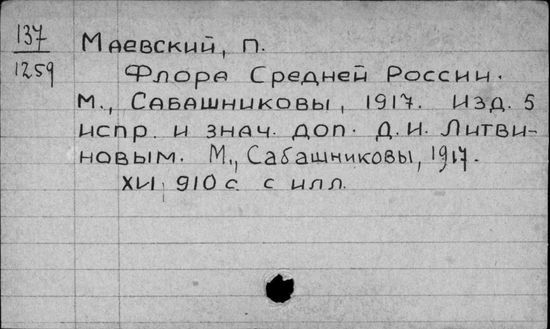 137
1259
Маевский, П.
Флора Средней России.
М., Сабашниковы, 1917. Изд. 5
испр. и знач. доп. Д.И. Литви-
новым. М., Сабашниковы, 1917.
XVI, 910 с. с илл.